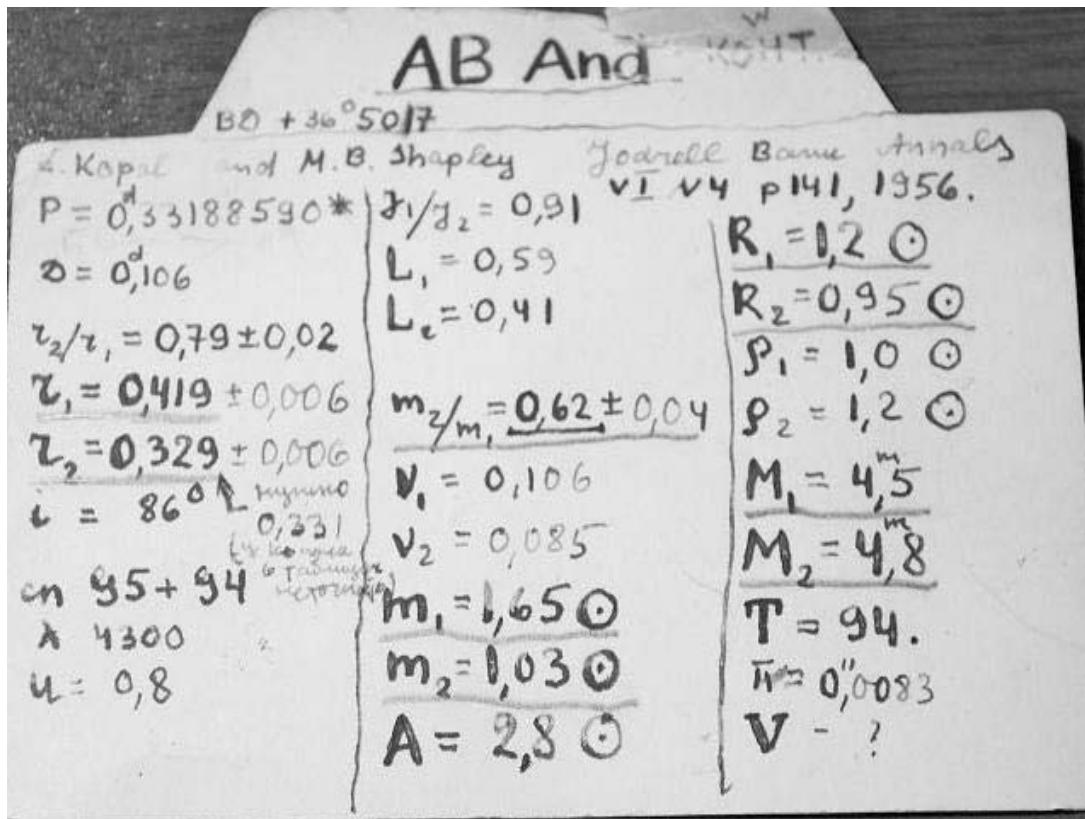 W
КОНТ.
AB And
BD + 36° 5017
Z. Kopal and M.B. Shapley Jodrell Bank Annals
v I N 4 p 141, 1956.
P = 0,ᵈ33188590*
D = 0,ᵈ106
r₂/r₁ = 0,79 ± 0,02
r₁ = 0,419 ± 0,006
r₂ = 0,329 ± 0,006
i = 86°
нужно
0,331
в таблице
сп g5 + g4
λ 4300
u = 0,8
J₁/J₂ = 0,91
L₁ = 0,59
L₂ = 0,41
m₂/m₁ = 0,62 ± 0,04
ν₁ = 0,106
ν₂ = 0,085
m₁ = 1,65 ⊙
m₂ = 1,03 ⊙
A = 2,8 ⊙
R₁ = 1,2 ⊙
R₂ = 0,95 ⊙
ρ₁ = 1,0 ⊙
ρ₂ = 1,2 ⊙
M₁ = 4,ᵐ5
M₂ = 4,ᵐ8
T = g4.
π = 0,"0083
V - ?